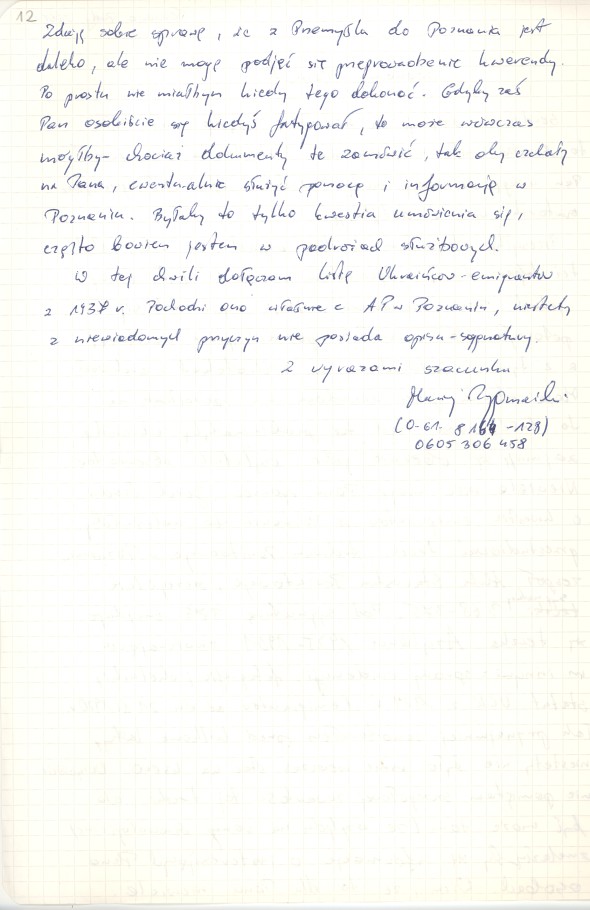 12
Zdaję sobie sprawę, że z Przemyśla do Poznania jest
daleko, ale nie mogę podjąć się przeprowadzenia kwerendy.
Po prostu nie miałbym kiedy tego dokonać. Gdyby zaś
Pan osobiście się kiedyś fatygował, to może wówczas
mógłbym chociaż dokumenty te zamówić, tak aby czekały
na Pana, ewentualnie służyć pomocą i informacją w
Poznaniu. Byłaby to tylko kwestia umówienia się,
często bowiem jestem w podróżach służbowych.
W tej chwili dołączam listę Ukraińców-emigrantów
z 1937 r. Pochodzi ona właśnie z AP w Poznaniu, niestety
z niewiadomych przyczyn nie posiada opisu-sygnatury.
Z wyrazami szacunku
(0-61- 8 -128)
0605 306 458